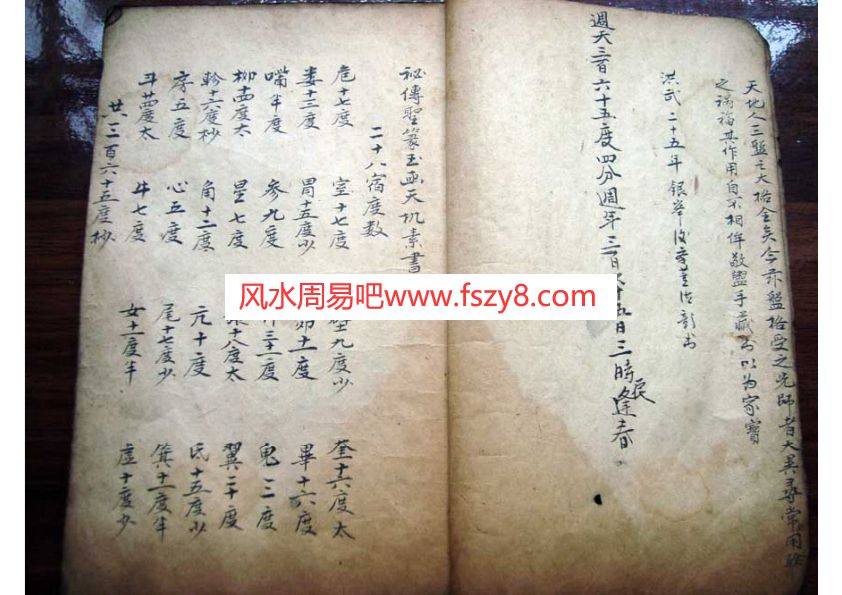 天地人三盤之大格全矣今亦盤格受之先師者大異尋常用
之禍福其作用自不相侔敬盥手藏書以為家寶
洪武二十五年
週天三百六十五度四分週年三百六十五日三時辰逢春
秘傳聖篆玉函天机素書
二十八宿度數
危十七度 室十七度 壁九度少 奎十六度太
婁十三度 胃十五度少 昴十一度 畢十六度
嘴半度 參九度 井三十一度 鬼三度
柳十四度太 星七度 張十八度太 翼二十度
軫十六度杪 角十二度 亢十度 氐十五度少
房五度 心五度 尾十七度少 箕十一度半
斗廿四度太 牛七度 女十一度半 虛十度少
共三百六十五度杪
风水周易吧www.fszy8.com